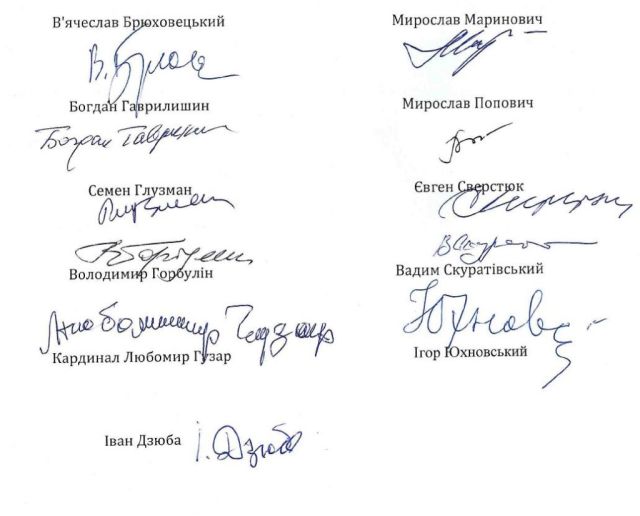 В'ячеслав Брюховецький
Богдан Гаврилишин
Богдан Гаврилишин
Семен Глузман
Глузман
Володимир Горбулін
Любомир Гузар
Кардинал Любомир Гузар
Іван Дзюба
І. Дзюба
Мирослав Маринович
Мирослав Попович
Євген Сверстюк
Вадим Скуратівський
Юхновс
Ігор Юхновський